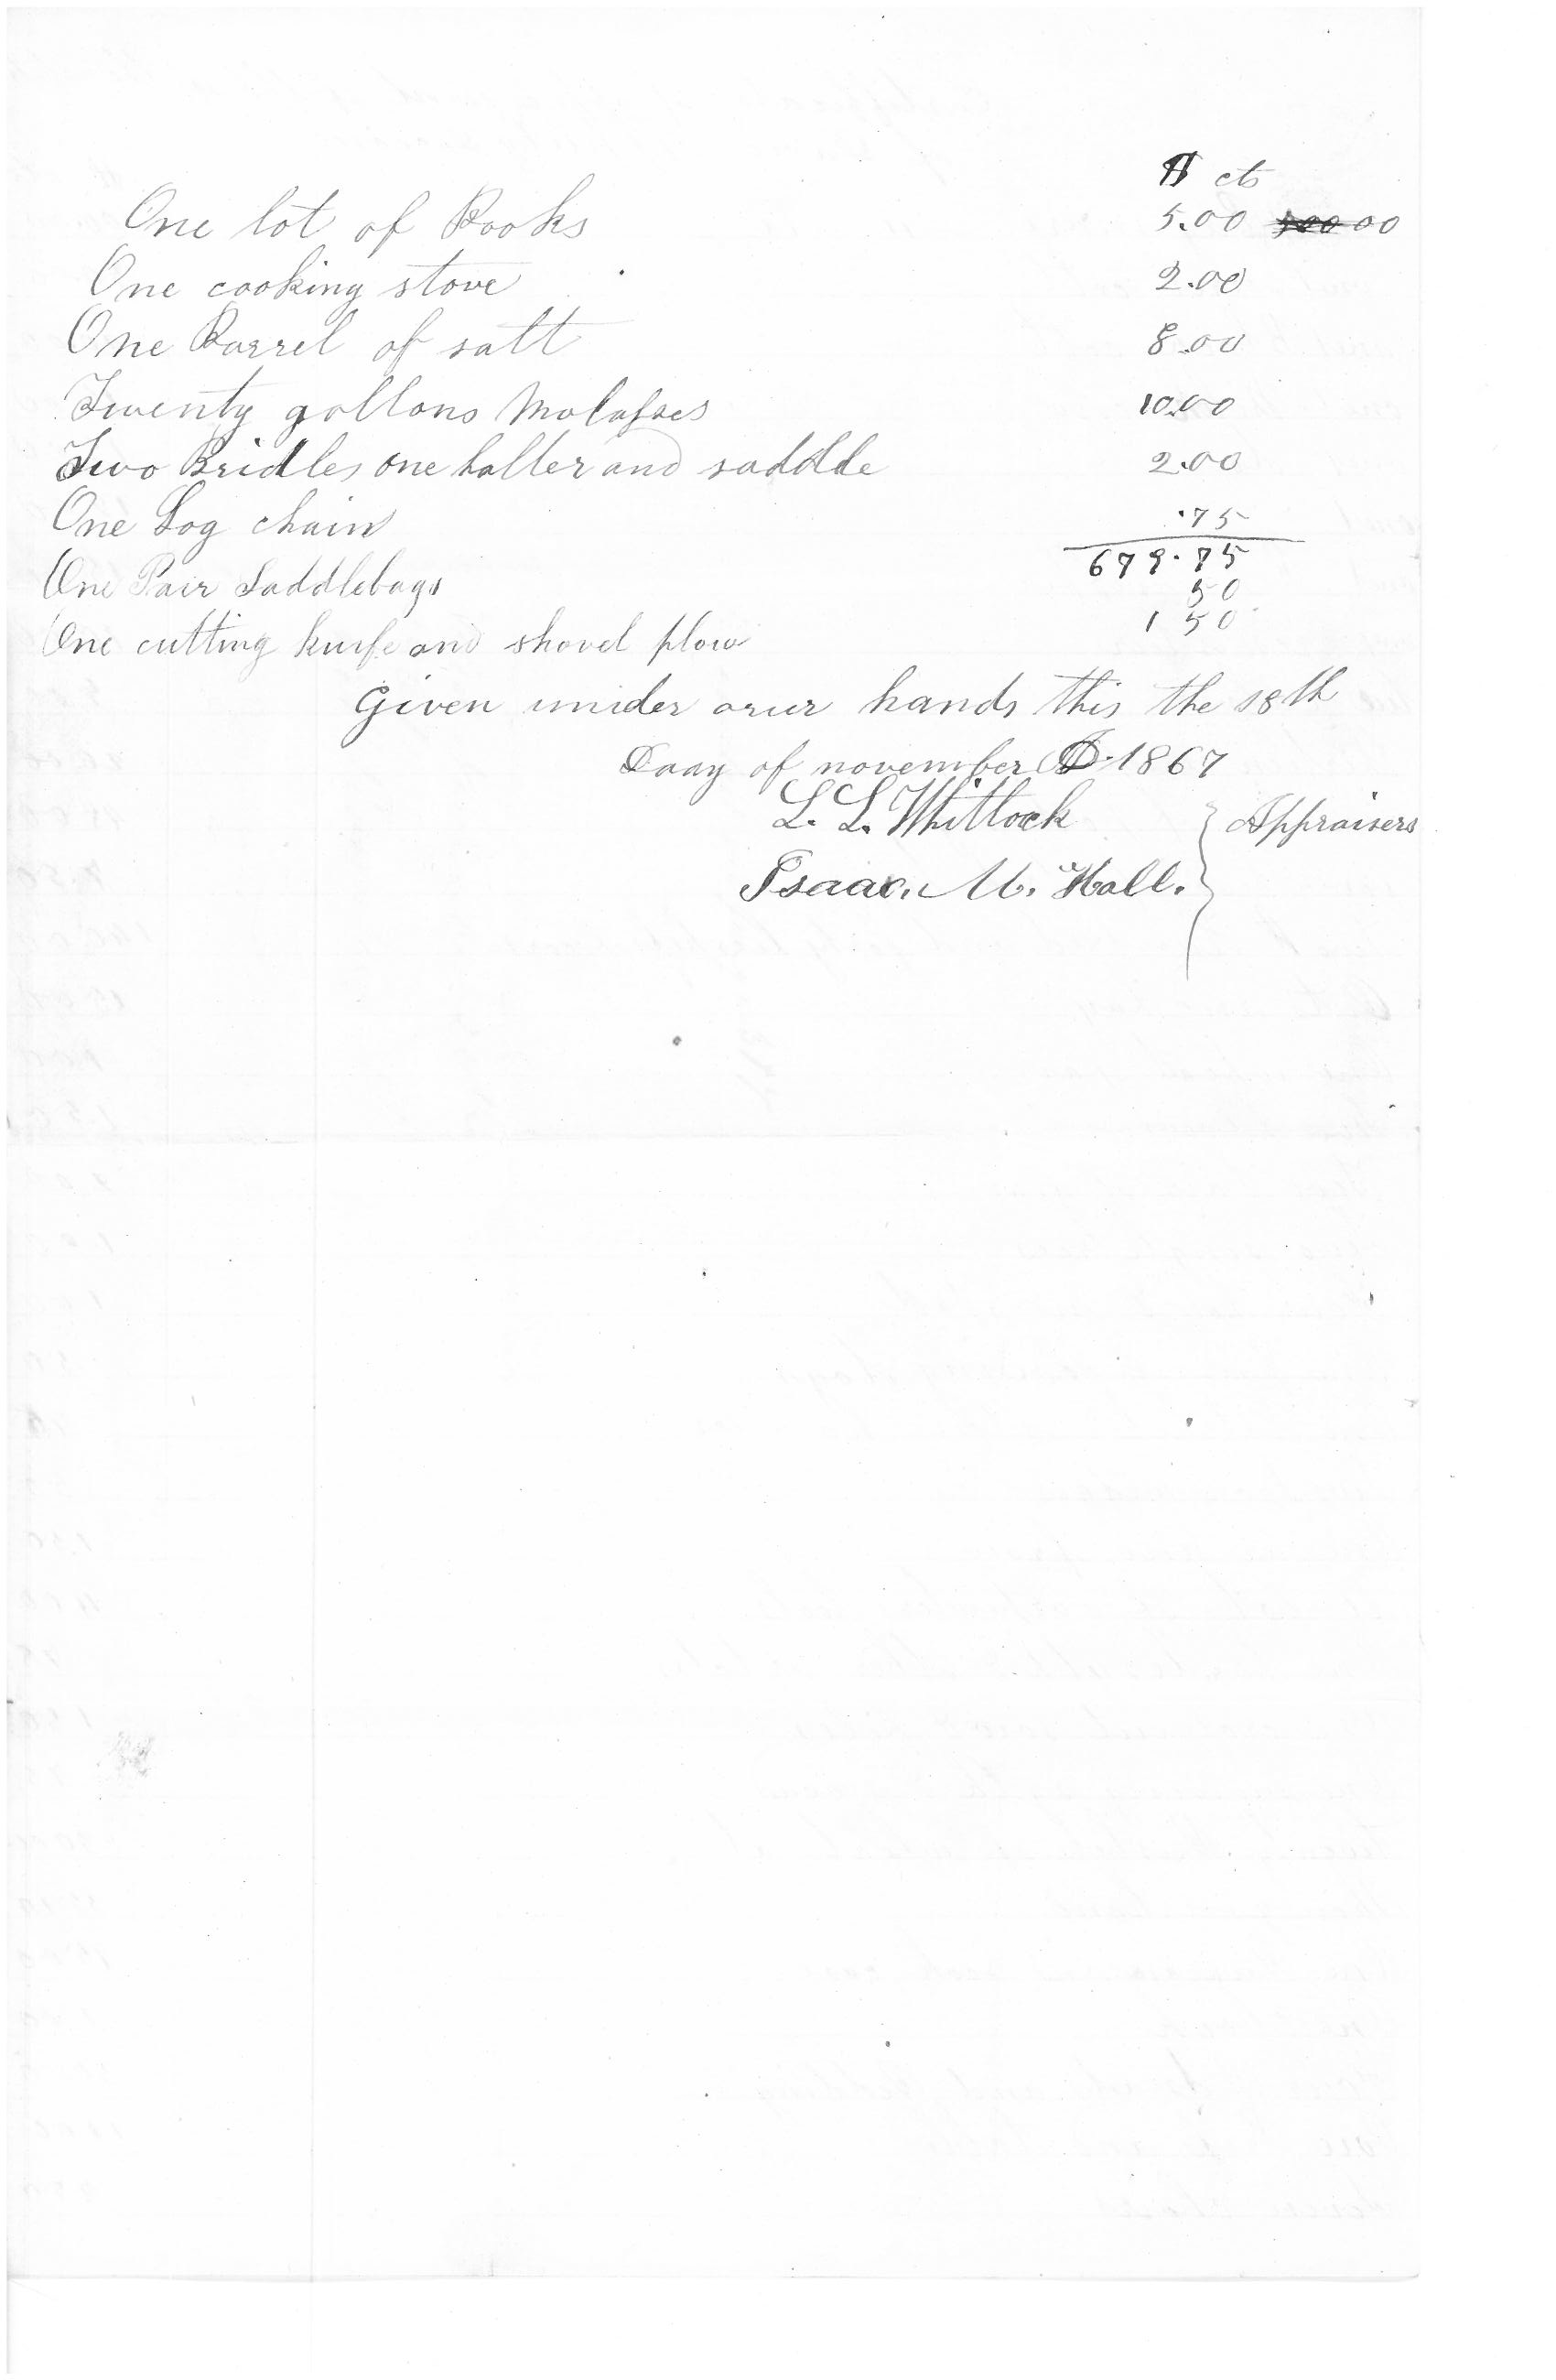 $ cts
One lot of Books 5.00 00
One cooking stove 2.00
One Barrel of salt 8.00
Twenty gallons Molasses 10.00
Two Bridles one halter and saddde 2.00
One Log chain .75
679.75
One Pair Saddlebags 50
One cutting knife and shovel plow 1 50
Given under our hands this the 18th
Daay of november AD. 1867
L. L. Whitlock } Appraisers
Isaac. M. Hall.